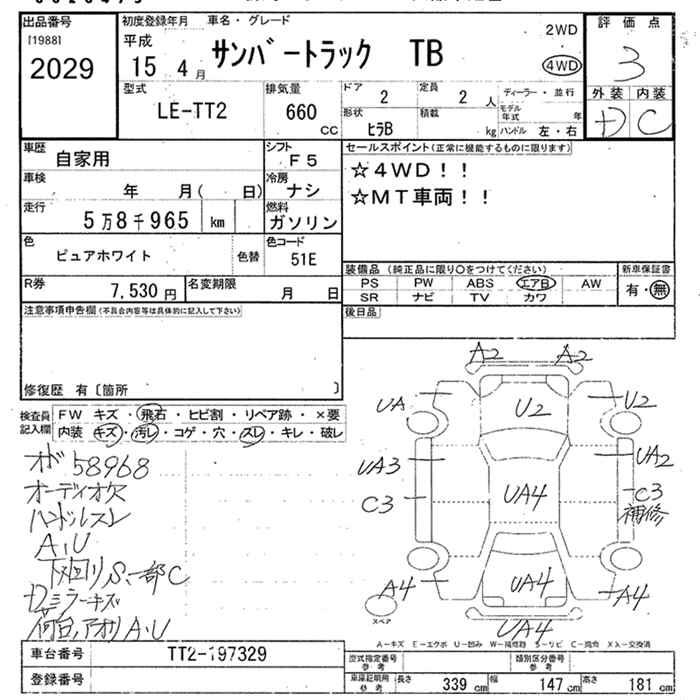 出品番号
[1988]
2029
初度登録年月
平成
15 4月
車名・グレード
サンバートラック TB
2WD
4WD
評価点
3
外装 内装
D C
型式
LE-TT2
排気量
660 cc
ドア
2
定員
2 人
ディーラー・並行
形状
ヒラB
積載
kg
モデル年式
年
ハンドル 左・右
車歴
自家用
シフト
F5
車検
年 月( 日)
冷房
ナシ
走行
5万8千965 km
燃料
ガソリン
色
ピュアホワイト
色替
色コード
51E
R券
7,530円
名変期限
月 日
セールスポイント(正常に機能するものに限ります)
☆4WD!!
☆MT車両!!
装備品 (純正品に限り〇をつけてください)
PS PW ABS エアB AW
SR ナビ TV カワ
新車保証書
有・無
後日品
注意事項申告欄(不具合内容等は具体的に記入して下さい)
修復歴 有〔箇所 〕
検査員記入欄
FW キズ・飛石・ヒビ割・リペア跡・×要
内装 キズ・汚レ・コゲ・穴・スレ・キレ・破レ
オガ58968
オーディオ欠
ハンドルスレ
A、U
下回りS、一部C
Dミラーキズ
荷台、アオリA、U
A2 A2
UA U2 U2
UA3 UA2
C3 UA4 C3
補修
A4 UA4 A4
スペア
UA4
A-キズ E-エクボ U-凹み W-補修跡 S-サビ C-腐食 XX-交換済
車台番号
TT2-197329
登録番号
型式指定番号
参考
類別区分番号
参考
車庫証明用
参考
長さ 339 cm 幅 147 cm 高さ 181 cm